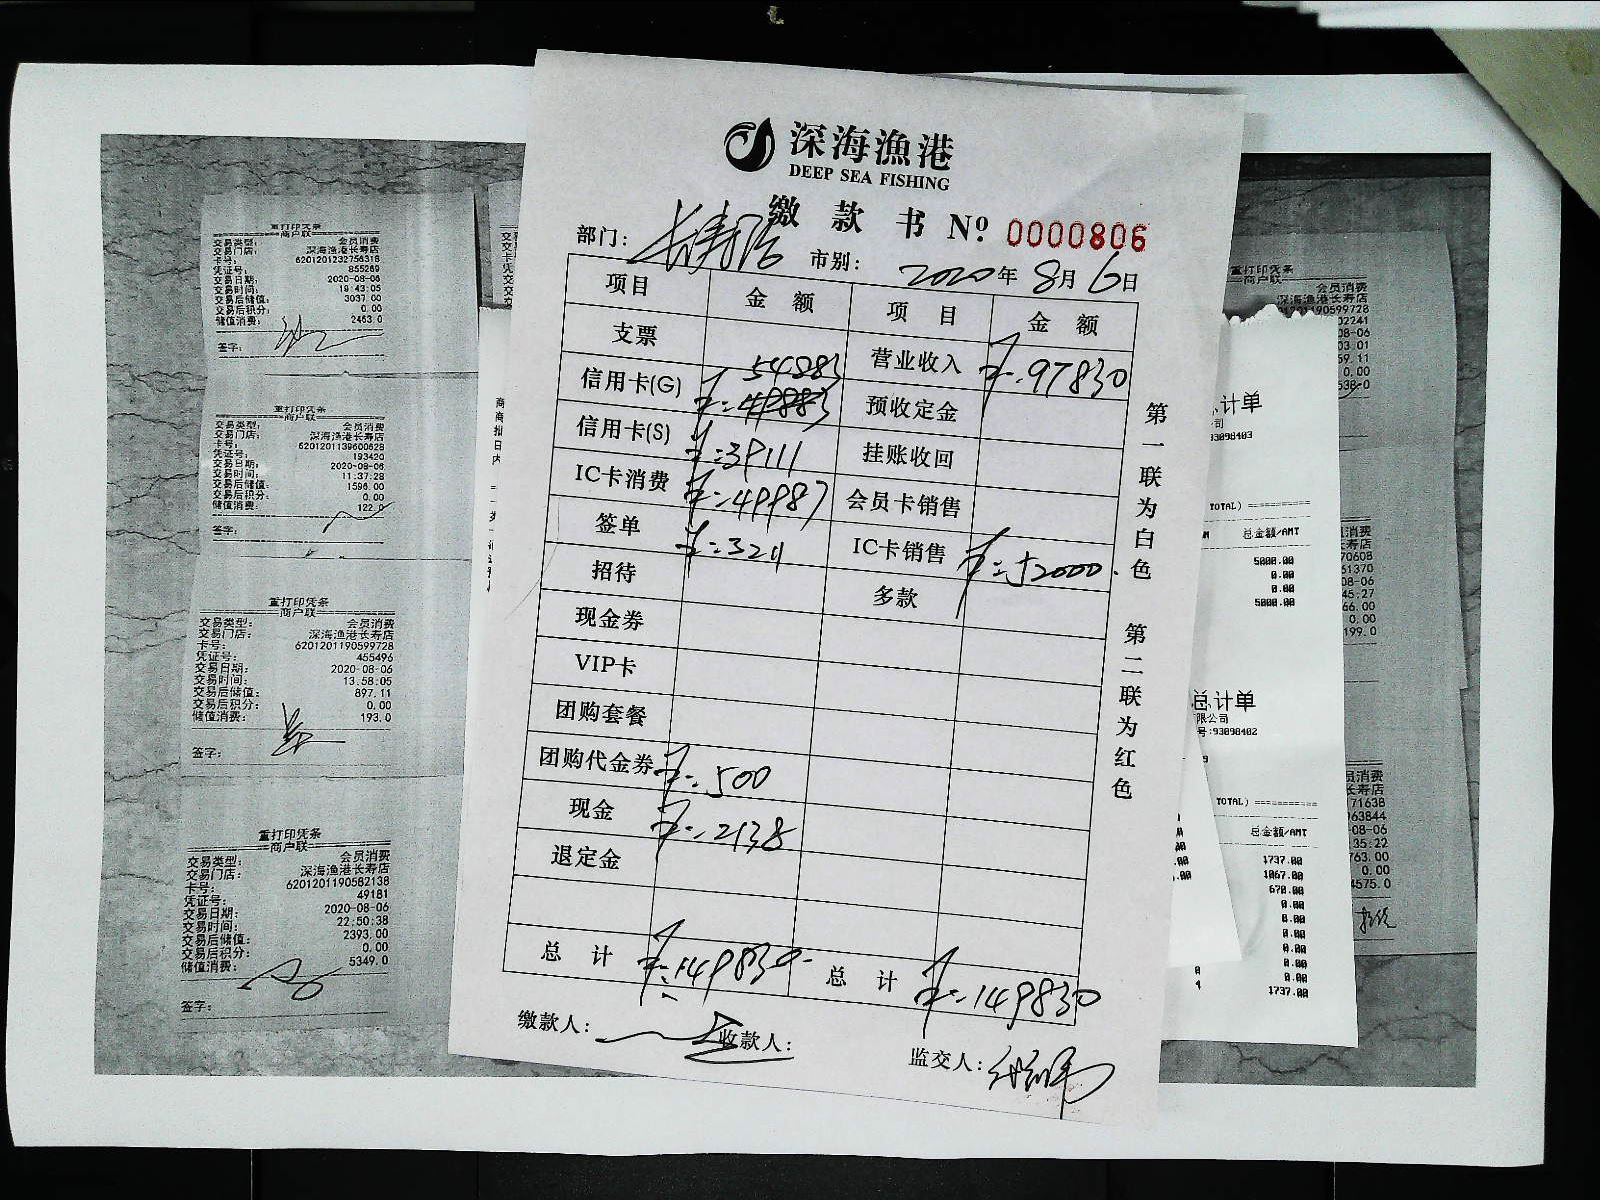 深海漁港
DEEP SEA FISHING
缴款书 Nº 0000806
部门: 长寿店 市别: 2020年8月6日
项目 金额 项目 金额
支票 营业收入 ¥:97830
信用卡(G) 54883 ¥:49883 预收定金
信用卡(S) ¥:39111 挂账收回
IC卡消费 ¥:49987 会员卡销售
签单 ¥:3211 IC卡销售 ¥:52000.
招待 多款
现金券
VIP卡
团购套餐
团购代金券 ¥:500
现金 ¥:2138
退定金
总计 ¥:149830- 总计 ¥:149830
缴款人: 收款人: 监交人:
第一联为白色 第二联为红色
重打印凭条
商户联
交易类型: 会员消费
交易门店: 深海渔港长寿店
卡号: 6201201232756318
凭证号: 855269
交易日期: 2020-08-06
交易时间: 19:43:05
交易后储值: 3037.00
交易后积分: 0.00
储值消费: 2463.0
签字:
重打印凭条
商户联
交易类型: 会员消费
交易门店: 深海渔港长寿店
卡号: 6201201139600628
凭证号: 193420
交易日期: 2020-08-06
交易时间: 11:37:28
交易后储值: 1596.00
交易后积分: 0.00
储值消费: 122.0
签字:
重打印凭条
商户联
交易类型: 会员消费
交易门店: 深海渔港长寿店
卡号: 6201201190599728
凭证号: 455496
交易日期: 2020-08-06
交易时间: 13:58:05
交易后储值: 897.11
交易后积分: 0.00
储值消费: 193.0
签字:
重打印凭条
商户联
交易类型: 会员消费
交易门店: 深海渔港长寿店
卡号: 6201201190582138
凭证号: 49181
交易日期: 2020-08-06
交易时间: 22:50:38
交易后储值: 2393.00
交易后积分: 0.00
储值消费: 5349.0
签字:
重打印凭条
商户联
会员消费
深海渔港长寿店
01190599728
02241
8-06
03.01
59.11
0.00
538.0
计单
司
93098403
TOTAL) ==========
总金额/AMT
5000.00
0.00
0.00
5000.00
总计单
限公司
号:93098402
TOTAL) ============
总金额/AMT
1737.00
1067.00
670.00
0.00
0.00
0.00
0.00
0.00
0.00
1737.00
消费
寿店
70608
61370
08-06
45:27
66.00
0.00
199.0
员消费
长寿店
71638
963844
-08-06
35:22
763.00
0.00
4575.0